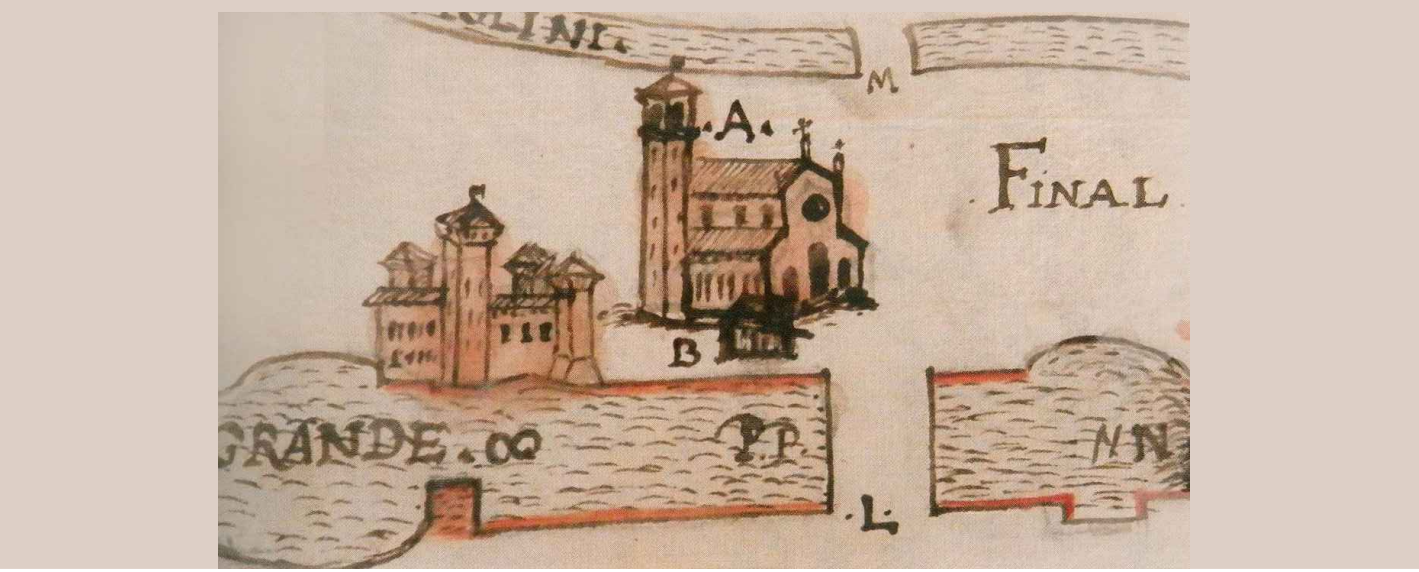 OLINI.
M
.A.
FINAL.
B
GRANDE. OO P.P. NN
.L.